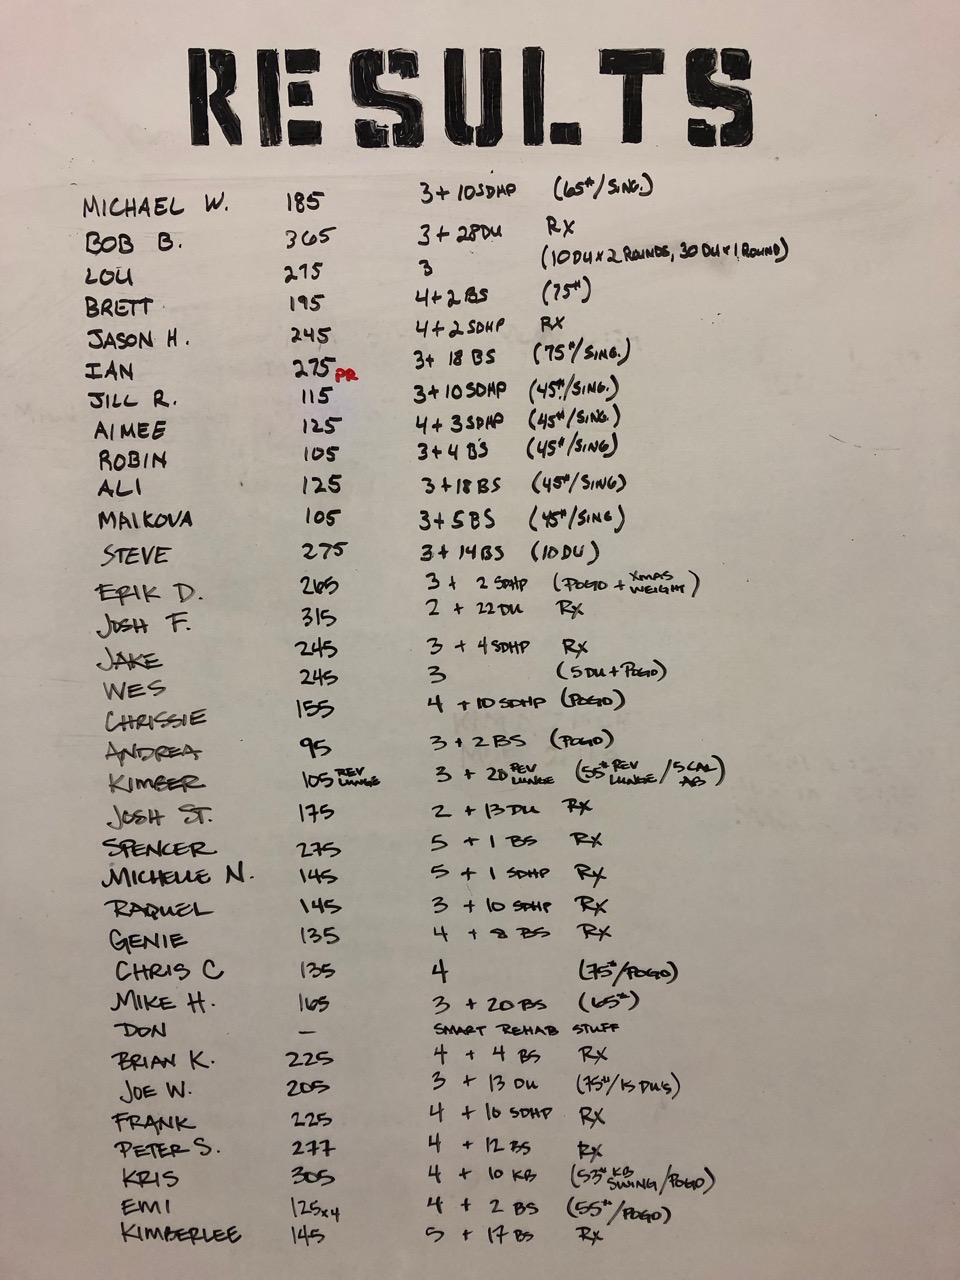 RESULTS
MICHAEL W. 185 3 + 10 SDHP (65#/SING.)
BOB B. 365 3 + 28 DU RX
LOU 275 3 (10 DU x 2 ROUNDS, 30 DU x 1 ROUND)
BRETT 195 4 + 2 BS (75#)
JASON H. 245 4 + 2 SDHP RX
IAN 275 PR 3 + 18 BS (75#/SING.)
JILL R. 115 3 + 10 SDHP (45#/SING.)
AIMEE 125 4 + 3 SDHP (45#/SING.)
ROBIN 105 3 + 4 BS (45#/SING)
ALI 125 3 + 18 BS (45#/SING)
MALKOVA 105 3 + 5 BS (45#/SING)
STEVE 275 3 + 14 BS (10 DU)
ERIK D. 265 3 + 2 SDHP (POGO + XMAS WEIGHT)
JOSH F. 315 2 + 22 DU Rx
JAKE 245 3 + 4 SDHP Rx
WES 245 3 (5 DU + POGO)
CHRISSIE 155 4 + 10 SDHP (POGO)
ANDREA 95 3 + 2 BS (POGO)
KIMBER 105 REV LUNGE 3 + 20 REV LUNGE (55# REV LUNGE / 5 CAL AB)
JOSH ST. 175 2 + 13 DU Rx
SPENCER 275 5 + 1 BS Rx
MICHELLE N. 145 5 + 1 SDHP Rx
RAQUEL 145 3 + 10 SDHP Rx
GENIE 135 4 + 8 BS Rx
CHRIS C 135 4 (75#/POGO)
MIKE H. 165 3 + 20 BS (65#)
DON — SMART REHAB STUFF
BRIAN K. 225 4 + 4 BS Rx
JOE W. 205 3 + 13 DU (75#/15 DU'S)
FRANK 225 4 + 10 SDHP Rx
PETER S. 277 4 + 12 BS Rx
KRIS 305 4 + 10 KB (53# KB SWING/POGO)
EMI 125x4 4 + 2 BS (55#/POGO)
KIMBERLEE 145 5 + 17 BS Rx